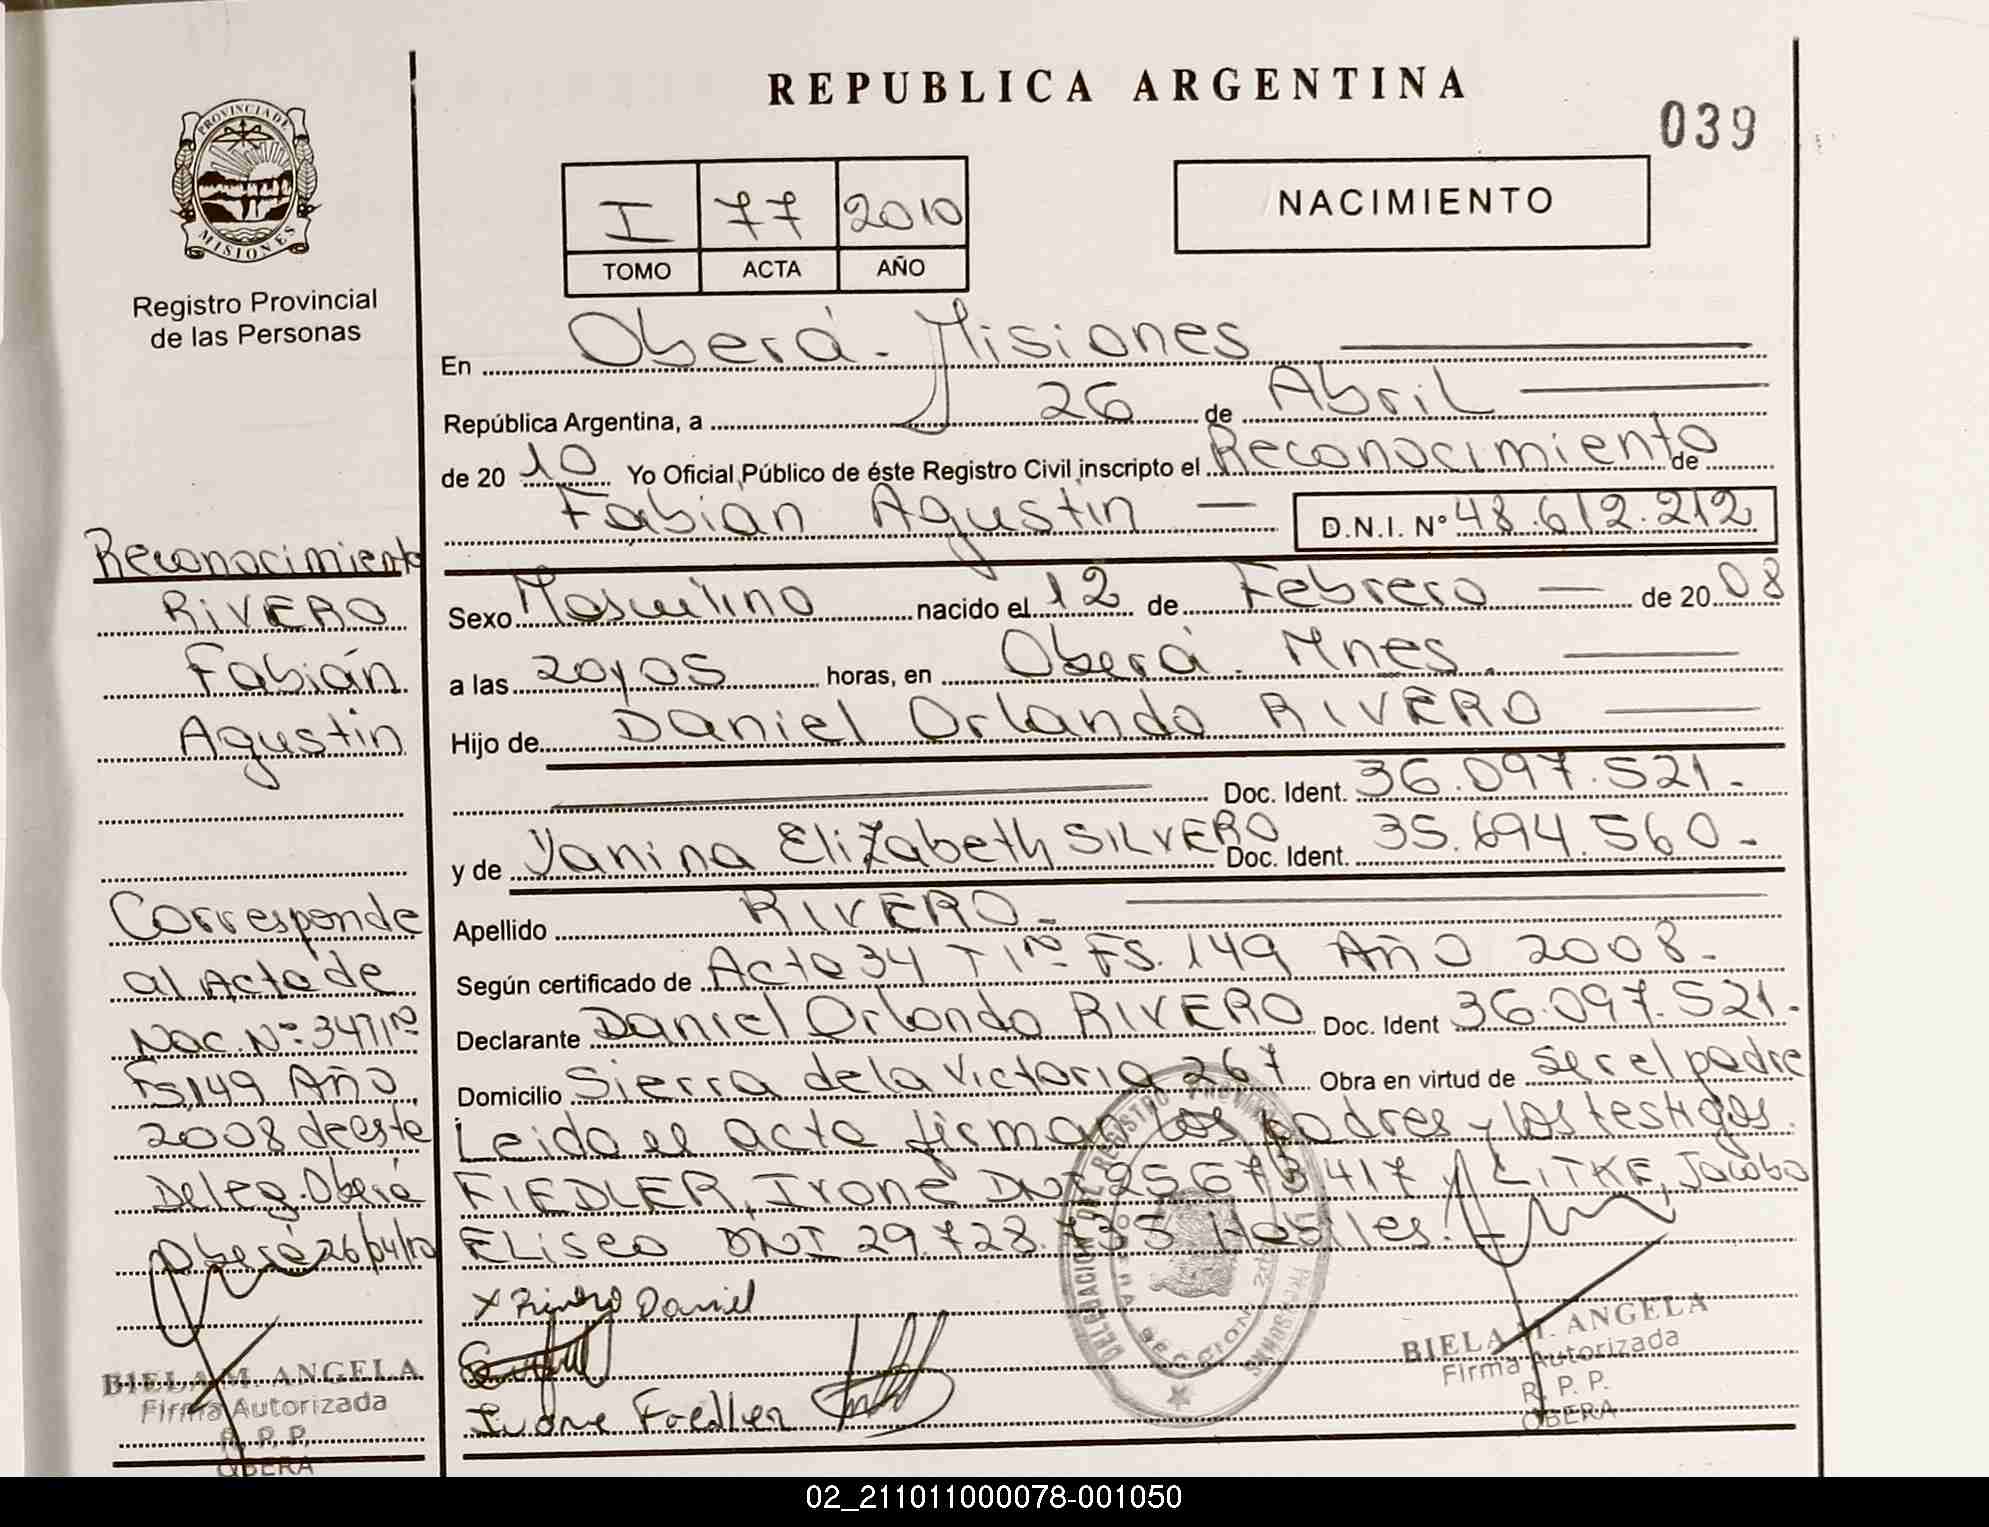 REPUBLICA ARGENTINA
039
PROVINCIA DE
MISIONES
Registro Provincial
de las Personas
I 77 2010
TOMO ACTA AÑO
NACIMIENTO
En Oberá - Misiones
República Argentina, a 26 de Abril
de 20 10 Yo Oficial Público de éste Registro Civil inscripto el Reconocimiento de
Fabian Agustin D.N.I. N° 48.612.212
Sexo Masculino nacido el 12 de Febrero de 20 08
a las 20 y 05 horas, en Oberá. Mnes.
Hijo de Daniel Orlando RIVERO
Doc. Ident. 36.097.521.-
y de Yanina Elizabeth SILVERO Doc. Ident. 35.694.560.-
Apellido RIVERO.-
Según certificado de Acta 34 T 1ro Fs. 149 Año 2008.-
Declarante Daniel Orlando RIVERO Doc. Ident 36.097.521.-
Domicilio Sierra de la Victoria 267 Obra en virtud de ser el padre
Leida el acta firman los padres y los testigos.
FIEDLER, Ivone DNI 25673417 y LITKE, Jacobo
ELiseo DNI 29.728.735 Habiles.
X Rivero Daniel
Ivone Fiedler
BIELA M. ANGELA
Firma Autorizada
R. P. P.
OBERA
Reconocimiento
RIVERO
Fabián
Agustin
Corresponde
al Acta de
Nac. N°: 34T1ro
Fs.149 Año
2008 de este
Deleg. Oberá
Oberá 26/04/10
BIELA M. ANGELA
Firma Autorizada
R. P. P.
OBERA
02_211011000078-001050